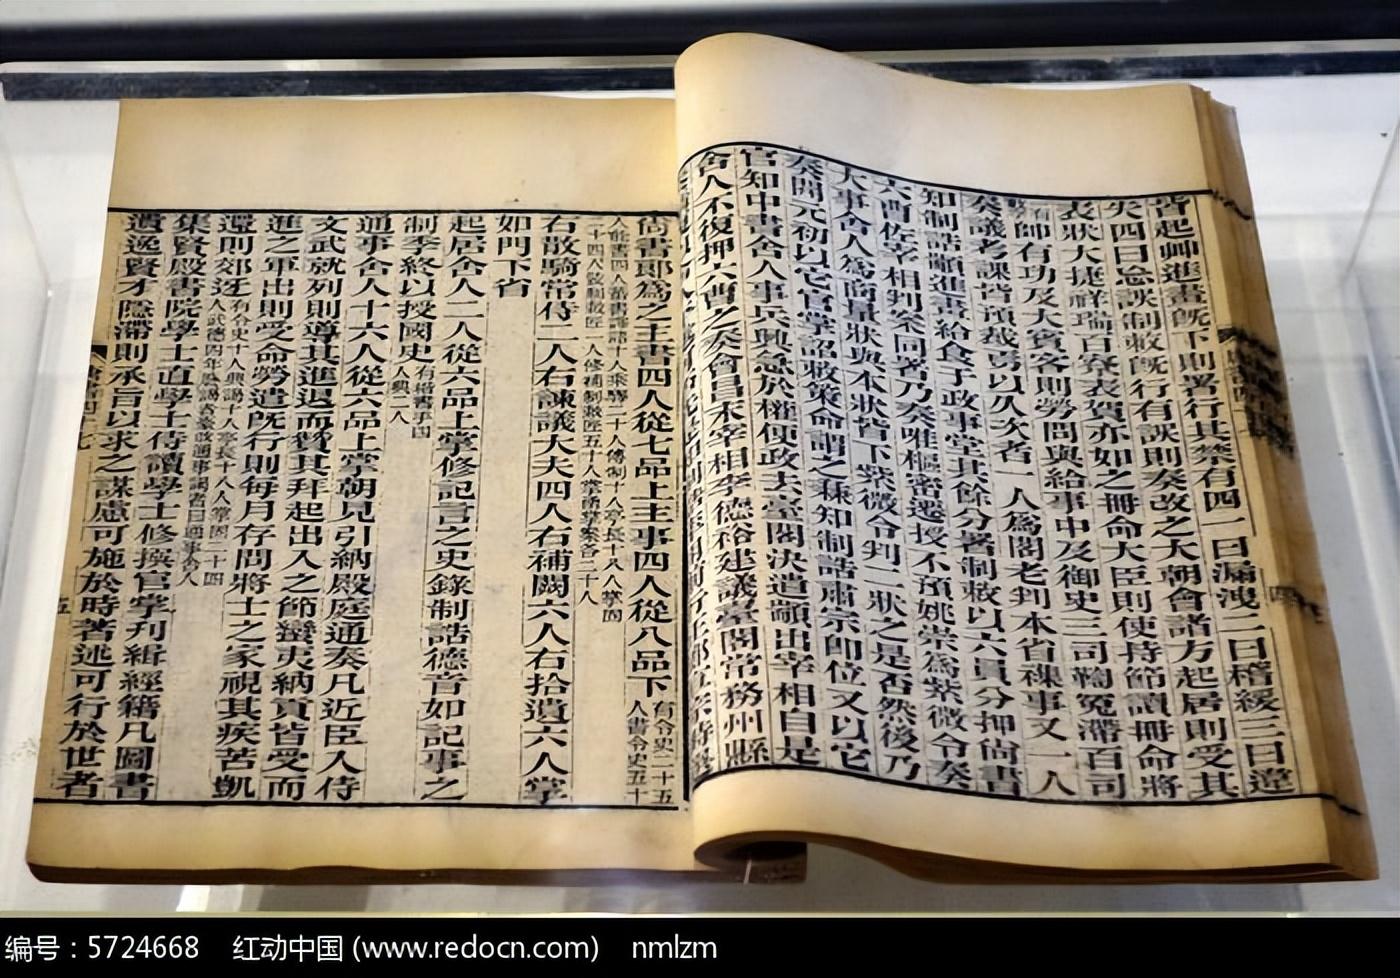 皆起艸進畫旣下則署行其禁有四一曰漏洩二曰稽緩三曰違
失四曰忘誤制敕旣行有誤則奏改之大朝會諸方起居則受其
表狀大捷祥瑞百寮表賀亦如之冊命大臣則使持節讀冊命將
帥有功及大賓客則勞問與給事中及御史三司鞫冤滯百司
奏議考課皆預裁焉以久次者一人爲閣老判本省雜事又一人
知制誥顓進畫給食于政事堂其餘分署制敕以六員分押尙書
六曹佐宰相判案同署乃奏唯樞密遷授不預姚崇爲紫微令奏
大事舍人爲商量狀與本狀皆下紫微令判二狀之是否然後乃
奏開元初以它官掌詔敕策命謂之兼知制誥肅宗卽位又以它
官知中書舍人事兵興急於權便政去臺閣決遣顓出宰相自是
舍人不復押六曹之奏會昌末宰相李德裕建議臺閣常務州縣
尙書郞爲之主書四人從七品上主事四人從八品下 有令史二十五
人書令史五十
人能書四人蕃書譯語十人乘驛二十人傳制十人亭長十八人掌固
二十四人裝制敕匠一人修補制敕匠五十人掌函掌案各二十人
右散騎常侍二人右諫議大夫四人右補闕六人右拾遺六人掌
如門下省
起居舍人二人從六品上掌修記言之史錄制誥德音如記事之
制季終以授國史 有楷書手四
人典二人
通事舍人十六人從六品上掌朝見引納殿庭通奏凡近臣入侍
文武就列則導其進退而贊其拜起出入之節蠻夷納貢皆受而
進之軍出則受命勞遣旣行則每月存問將士之家視其疾苦凱
還則郊迓
集賢殿書院學士直學士侍讀學士修撰官掌刊緝經籍凡圖書
遺逸賢才隱滯則承旨以求之謀慮可施於時著述可行於世者
编号：5724668 红动中国 (www.redocn.com) nmlzm